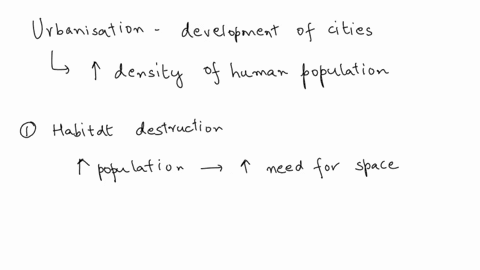 Urbanisation - development of cities
↳ ↑ density of human population
① Habitat destruction
↑ population → ↑ need for space